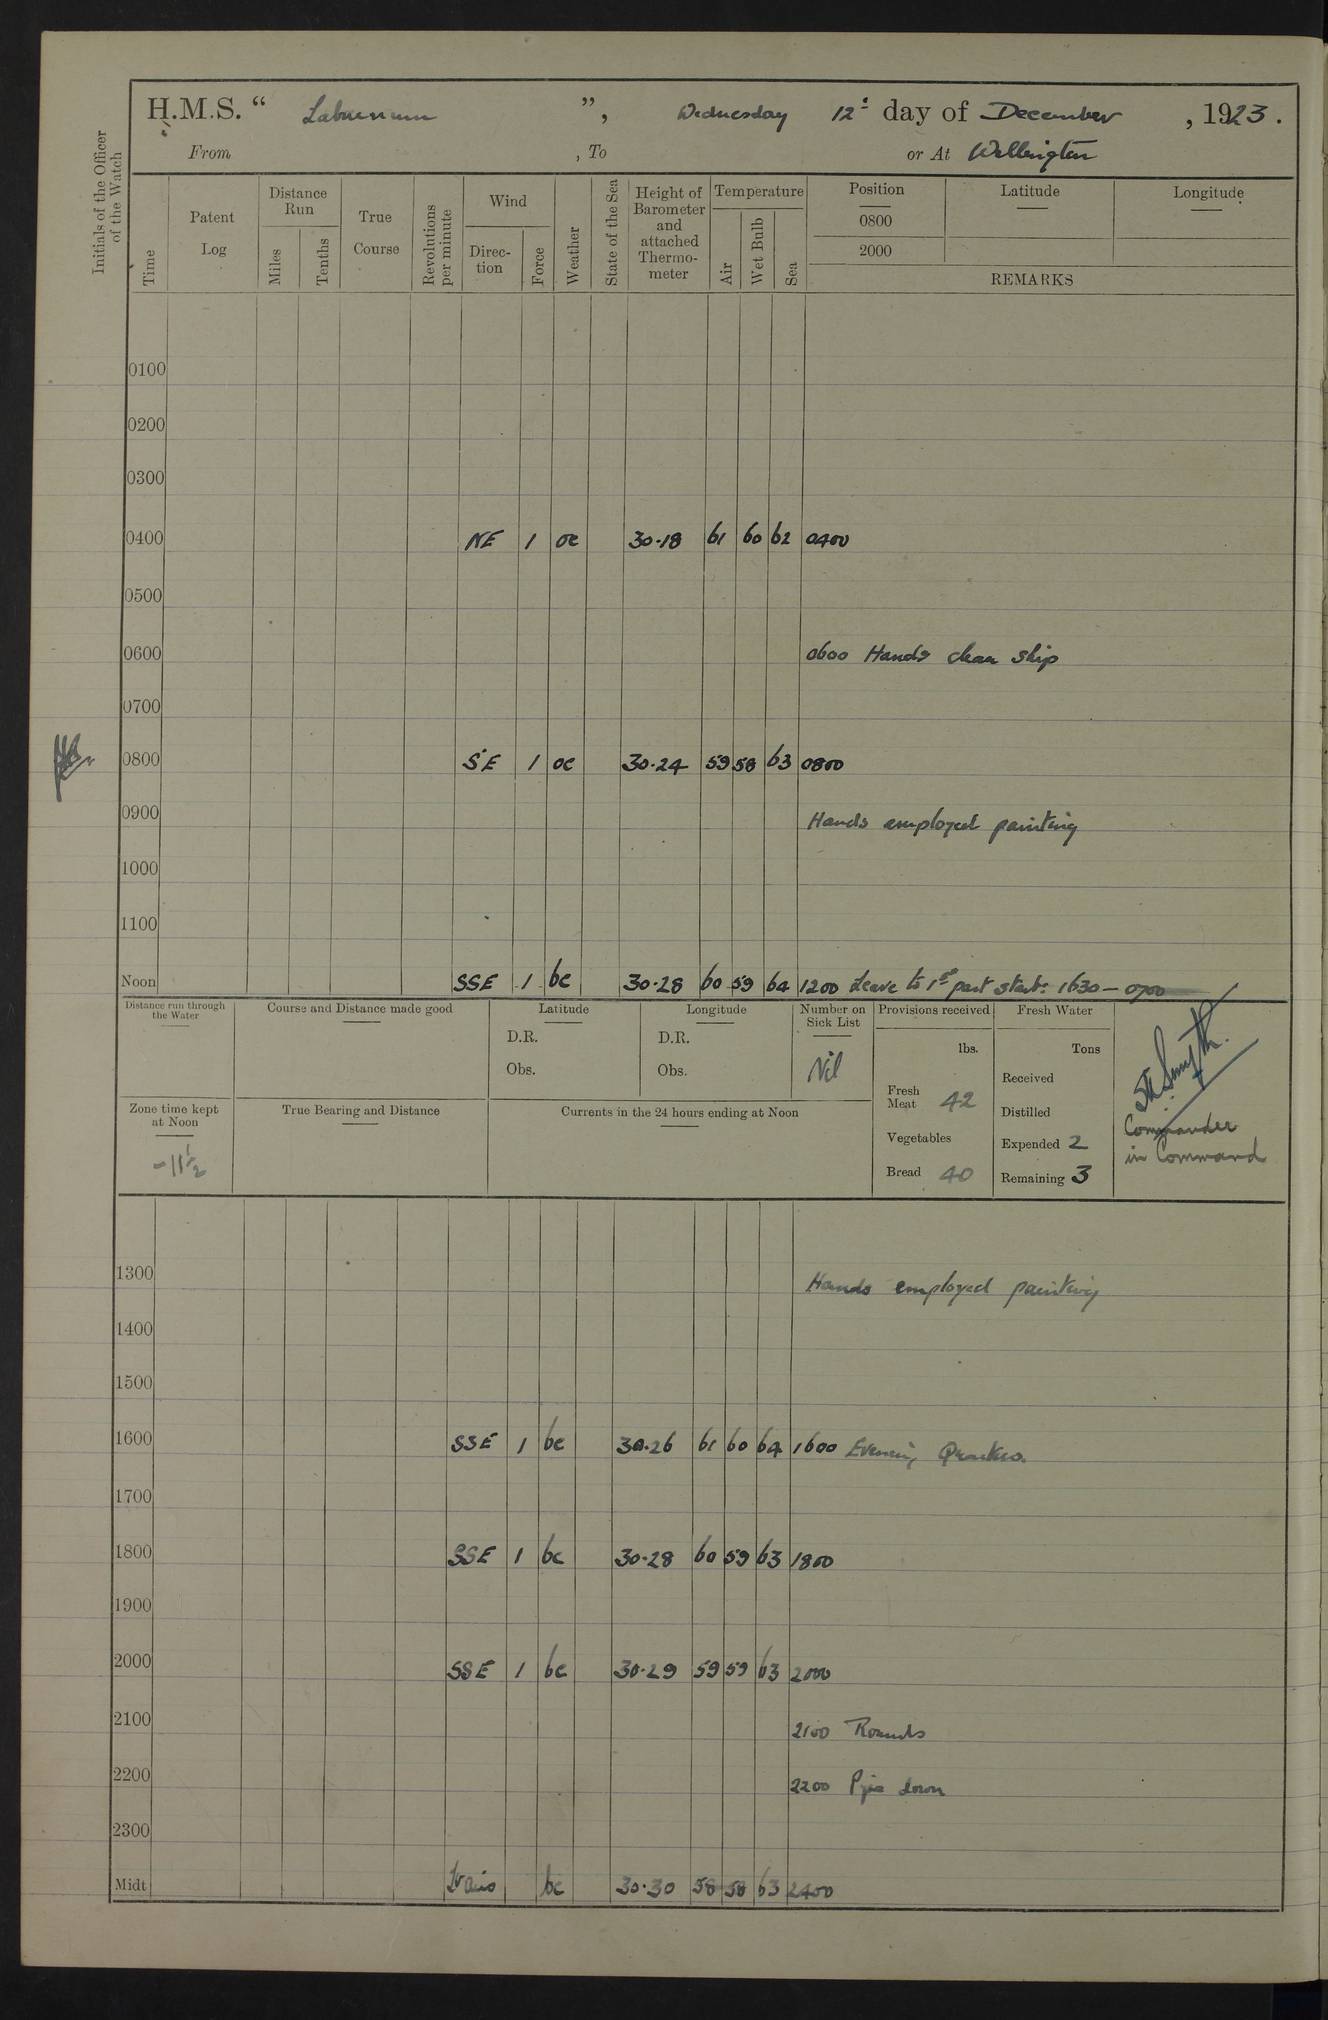 H.M.S. “ Laburnum ”, Wednesday 12th day of December, 1923.
From , To or At Wellington
Initials of the Officer of the Watch
Time
Patent Log
Distance Run
Miles
Tenths
True Course
Revolutions per minute
Wind
Direc-tion
Force
Weather
State of the Sea
Height of Barometer and attached Thermo-meter
Temperature
Air
Wet Bulb
Sea
Position Latitude Longitude
0800
2000
REMARKS
0100
0200
0300
0400 NE 1 oc 30·18 61 60 62 0400
0500
0600 0600 Hands clean ship
0700
0800 SE 1 oc 30·24 59 58 63 0800
0900 Hands employed painting
1000
1100
Noon SSE 1 bc 30·28 60 59 64 1200 Leave to 1st part starb: 1630 - 0700
Distance run through the Water
Course and Distance made good
Latitude
D.R.
Obs.
Longitude
D.R.
Obs.
Number on Sick List
Nil
Provisions received
lbs.
Fresh Meat 42
Vegetables
Bread 40
Fresh Water
Tons
Received
Distilled
Expended 2
Remaining 3
Smyth
Commander
in Command
Zone time kept at Noon
-11½
True Bearing and Distance
Currents in the 24 hours ending at Noon
1300 Hands employed painting
1400
1500
1600 SSE 1 bc 30·26 61 60 64 1600 Evening Quarters.
1700
1800 SSE 1 bc 30·28 60 59 63 1800
1900
2000 SSE 1 bc 30·29 59 59 63 2000
2100 2100 Rounds
2200 2200 Pipe down
2300
Midt bc 30·30 58 58 63 2400